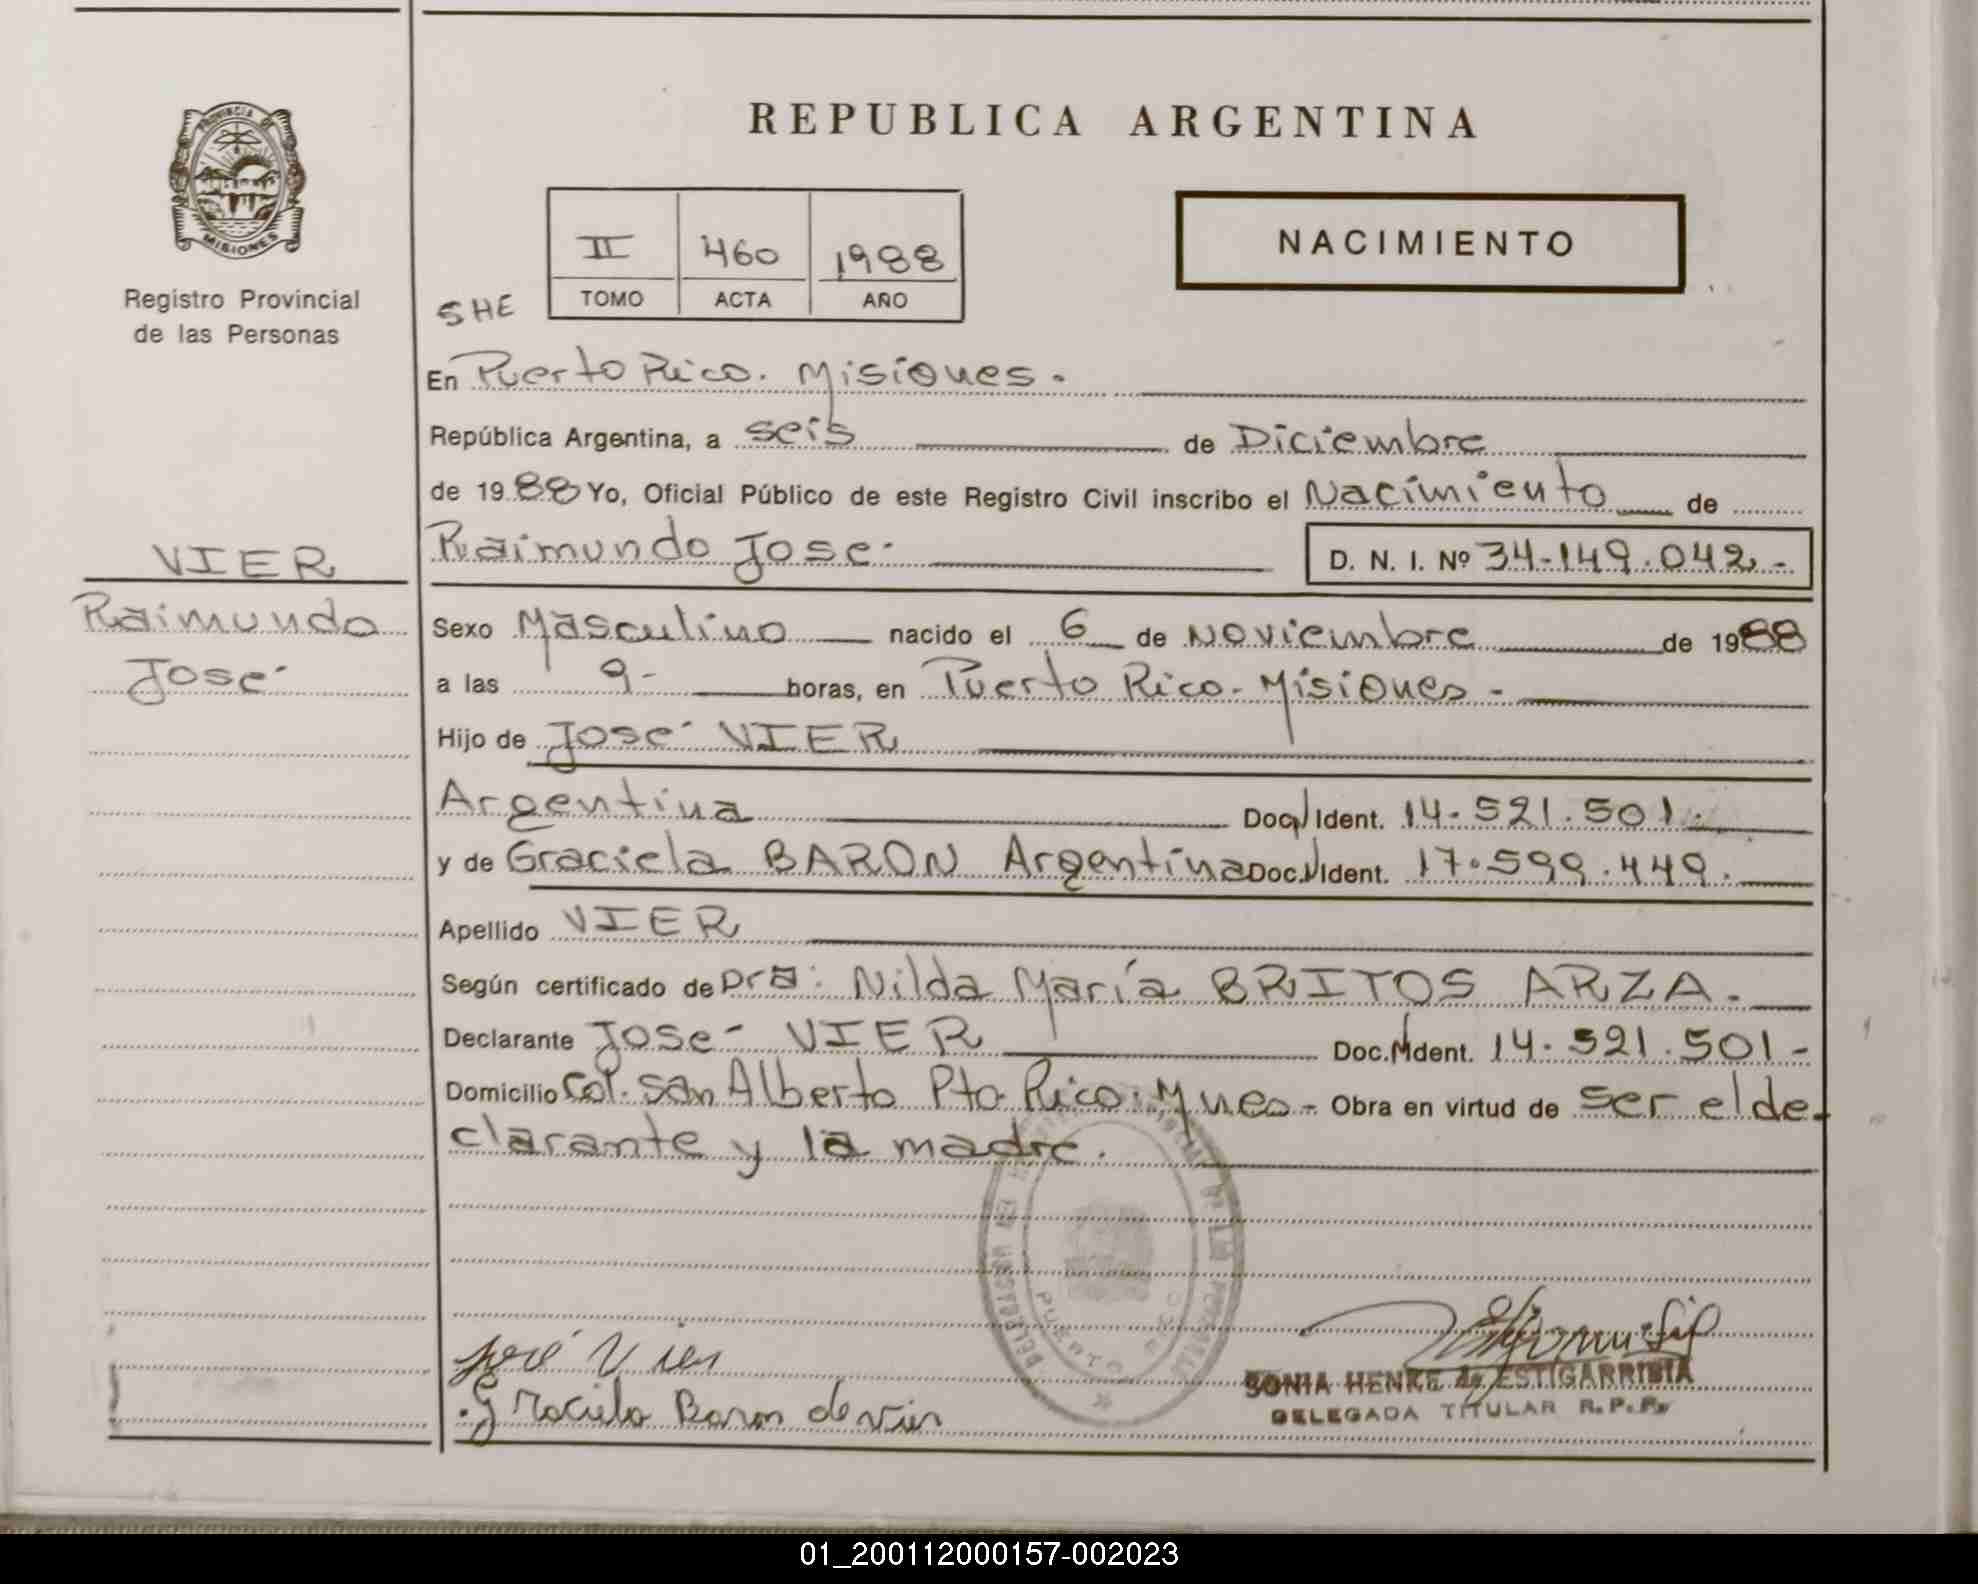 REPUBLICA ARGENTINA
PROVINCIA DE
MISIONES
Registro Provincial
de las Personas
II 460 1988
TOMO ACTA AÑO
NACIMIENTO
SHE
En Puerto Rico. Misiones.
República Argentina, a seis de Diciembre
de 1988 Yo, Oficial Público de este Registro Civil inscribo el Nacimiento de
VIER
Raimundo José
D. N. I. Nº 34-149.042.-
Raimundo
José
Sexo Masculino nacido el 6 de Noviembre de 1988
a las 9- horas, en Puerto Rico-Misiones-
Hijo de José VIER
Argentina Doc. Ident. 14.521.501.
y de Graciela BARON Argentina Doc. Ident. 17.599.449.
Apellido VIER
Según certificado de Dra: Nilda María BRITOS ARZA.
Declarante José VIER Doc. Ident. 14.521.501-
Domicilio Col. San Alberto Pto Rico. Mnes- Obra en virtud de ser el de-
clarante y la madre.
PUERTO RICO
José Vier
Graciela Baron de Vier
SONIA HENKE de ESTIGARRIBIA
DELEGADA TITULAR R.P.P.
01_200112000157-002023